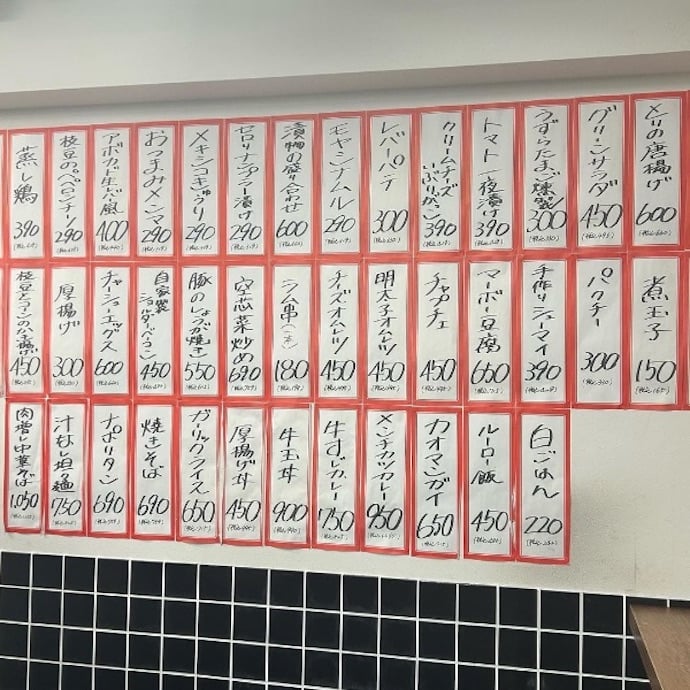 とりの唐揚げ 600 (税込660)
グリーンサラダ 450 (税込495)
うずらたまご燻製 300
トマト一夜漬け 390
クリームチーズいぶりがっこ 390
レバーパテ 300
モヤシナムル 290
漬物の盛り合わせ 600
セロリナンプラー漬け 290
メキシコきゅうり 290
おつまみメンマ 290
アボカド生ハム風 400
枝豆のペペロンチーノ 290
蒸し鶏 390
煮玉子 150 (税込165)
パクチー 300 (税込330)
手作りシューマイ 390
マーボー豆腐 650
チャプチェ 450
明太子オムレツ 450
チーズオムレツ 450
ラム串 180
空芯菜炒め 690
豚のしょうが焼き 550
自家製ショルダーベーコン 450
チャーシューエッグス 600
厚揚げ 300
枝豆とコーンのかき揚げ 450
白ごはん 220
ルーロー飯 450
カオマンガイ 650
メンチカツカレー 950
牛すじカレー 750
牛玉丼 900
厚揚げ丼 450
ガーリックライス 650
焼きそば 690
ナポリタン 690
汁なし坦々麺 750
肉増し中華そば 1,050